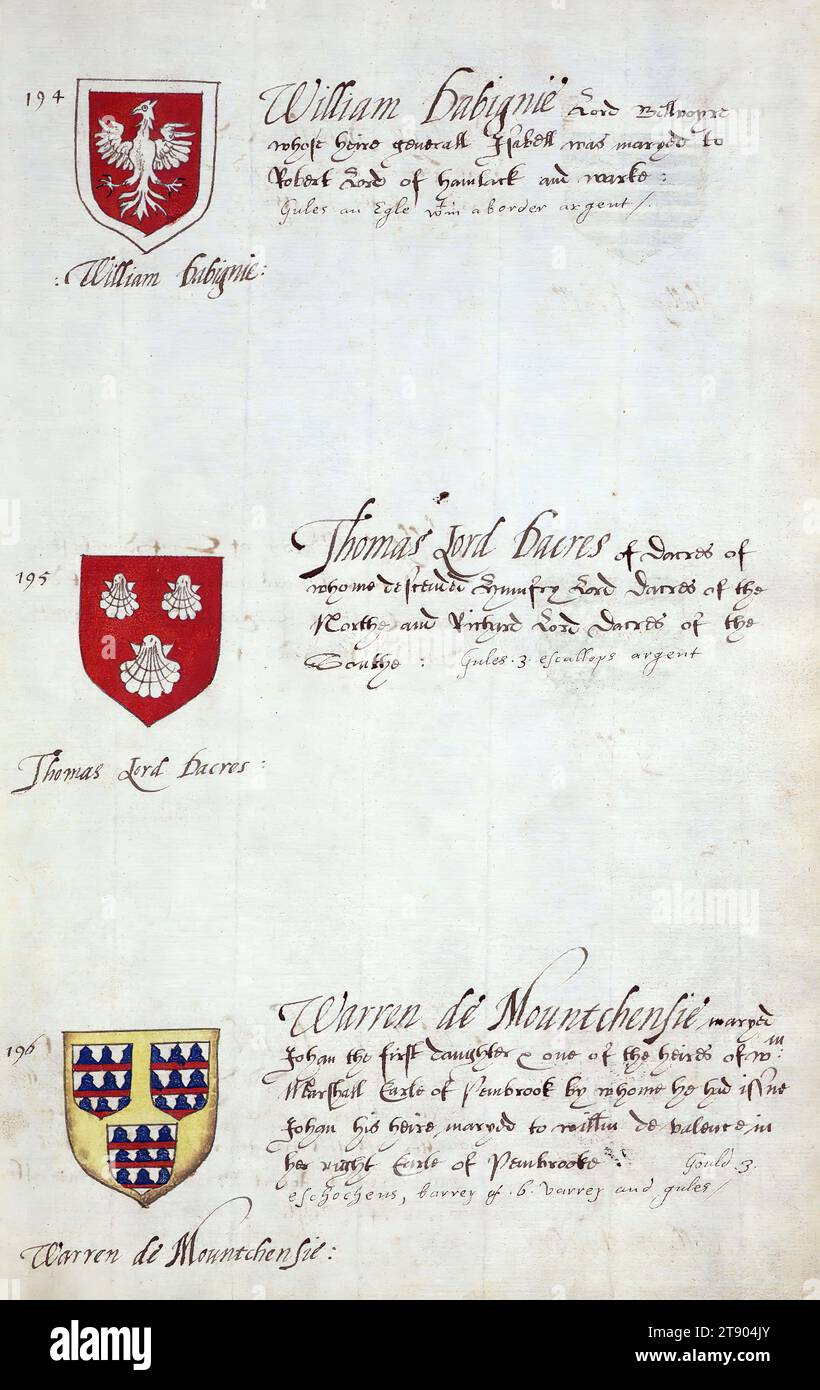 194
William Dabignie Lord Bellvoyre
whose heire generall Isabell was maryed to
Robert Lord of hamlack and warke :
Gules an Egle wtin a border argent /.
: William Dabignie :
195
Thomas Lord Dacres of Dacres of
whome descended Humfrey Lord Dacres of the
Northe and Richard Lord Dacres of the
Southe : Gules .3. escallops argent
Thomas Lord Dacres :
196
Warren de Mountchensie maryed
Johan the first daughter & one of the heires of Wm
Marshall Earle of Pembrook by whome he had issue
Johan his heire maryed to willm de valence in
her right Earle of Pembrooke : Gould .3.
eschochens, barrey of .6. varrey and gules /
Warren de Mountchensie :
alamy
alamy
alamy
Image ID: 2T904JY
www.alamy.com